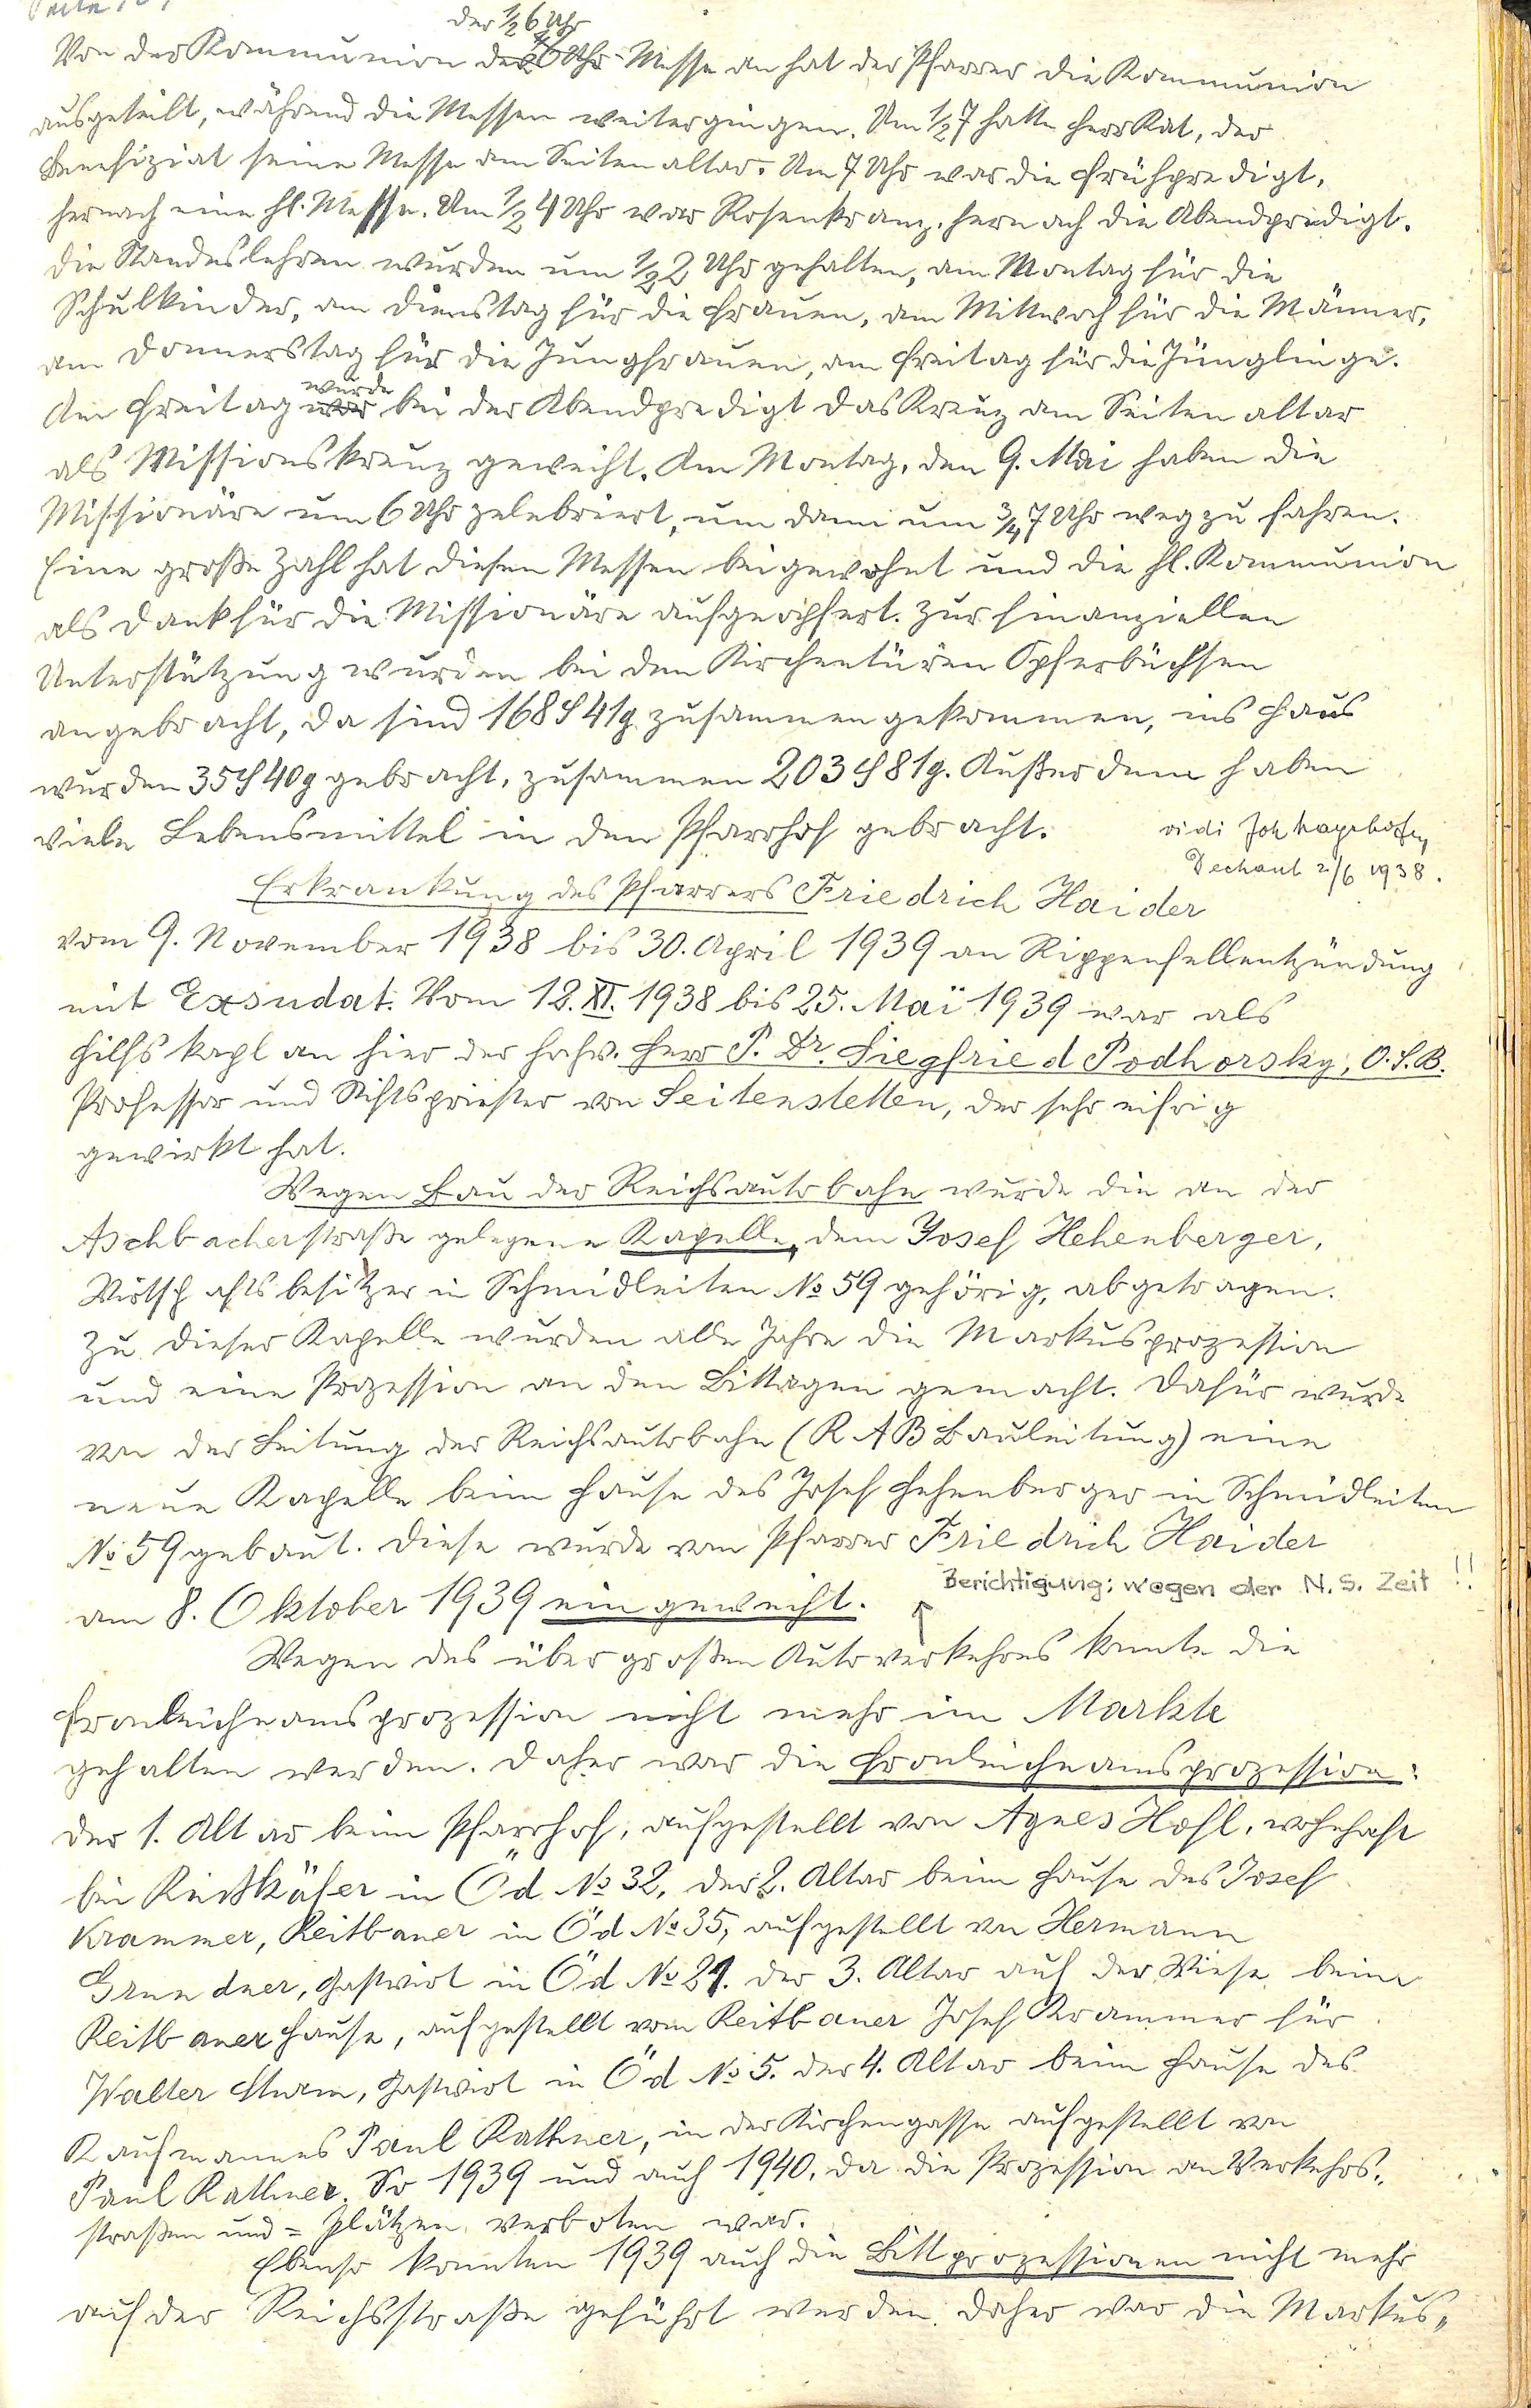 Seite
der ½6 Uhr
Von der Kommunion der ½6 Uhr-Messe an hat der Pfarrer die Kommunion
ausgeteilt, während die Messen weitergingen. Um ½7 hatte Herr Rat, der
Benefiziat seine Messe am Seitenaltar. Um 7 Uhr war die Frühpredigt,
hernach eine hl. Messe. Um ½4 Uhr war Rosenkranz, hernach die Abendpredigt.
Die Standeslehren wurden um ½2 Uhr gehalten, am Montag für die
Schulkinder, am Dienstag für die Frauen, am Mittwoch für die Männer,
am Donnerstag für die Jungfrauen, am Freitag für die Jünglinge.
wurde
Am Freitag war bei der Abendpredigt das Kreuz am Seitenaltar
als Missionskreuz geweiht. Am Montag, den 9. Mai haben die
Missionäre um 6 Uhr zelebriert, um dann um ¾7 Uhr wegzufahren.
Eine große Zahl hat diesen Messen beigewohnt und die hl. Kommunion
als Dank für die Missionäre aufgeopfert. Zur finanziellen
Unterstützung wurden bei den Kirchentüren Opferbüchsen
angebracht, da sind 168 S 41 g zusammengekommen, ins Haus
wurden 35 S 40 g gebracht, zusammen 203 S 81 g. Außerdem haben
viele Lebensmittel in den Pfarrhof gebracht.
vidi Joh
Dechant 2/6 1938.
Erkrankung des Pfarrers Friedrich Haider
vom 9. November 1938 bis 30. April 1939 an Rippenfellentzündung
mit Exsudat. Vom 12. XI. 1938 bis 25. Mai 1939 war als
Hilfskaplan hier der hochw. Herr P. Dr. Siegfried Podhorsky, O.S.B.
Professor und Stiftspriester von Seitenstetten, der sehr eifrig
gewirkt hat.
Wegen Bau der Reichsautobahn wurde die an der
Aschbacherstraße gelegene Kapelle, dem Josef Hehenberger,
Wirtschaftsbesitzer in Schmidleiten No 59 gehörig, abgetragen.
Zu dieser Kapelle wurden alle Jahre die Markusprozession
und eine Prozession an den Bittagen gemacht. Dafür wurde
von der Leitung der Reichsautobahn (RAB Bauleitung) eine
neue Kapelle beim Hause des Josef Hehenberger in Schmidleiten
No 59 gebaut. Diese wurde vom Pfarrer Friedrich Haider
am 8. Oktober 1939 eingeweiht.
Berichtigung: wegen der N.S. Zeit!!
Wegen des übergroßen Autoverkehres konnte die
Fronleichnamsprozession nicht mehr im Markte
gehalten werden. Daher war die Fronleichnamsprozession:
der 1. Altar beim Pfarrhof, aufgestellt von Agnes Hofl, wohnhaft
bei in Öd No 32, der 2. Altar beim Hause des Josef
Krammer, Reitbauer in Öd No 35, aufgestellt von Hermann
Grundner, Gastwirt in Öd No 21. der 3. Altar auf der Wiese beim
Reitbauerhause, aufgestellt vom Reitbauer Josef Krammer für
Walter Sturm, Gastwirt in Öd No 5. der 4. Altar beim Hause des
Kaufmannes Paul Rathner, in der Kirchengasse aufgestellt von
Paul Rathner. So 1939 und auch 1940, da die Prozession an Verkehrs-
straßen und =plätzen verboten war.
Ebenso konnten 1939 auch die Bittprozessionen nicht mehr
auf der Reichsstraße geführt werden. Daher war die Markus-